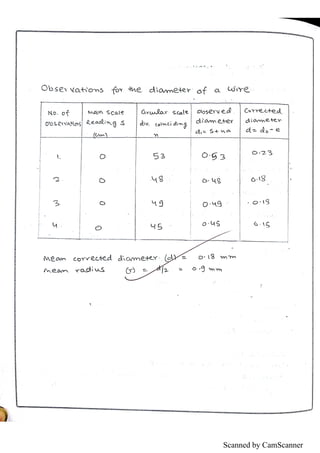 Observations for the diameter of a wire
No. of observations | Main scale Reading S (mm) | Circular scale div. coinciding n | observed diameter d₀ = S + na | Corrected diameter d = d₀ - e
1. | 0 | 53 | 0.53 | 0.23
2 | 0 | 48 | 0.48 | 0.18
3 | 0 | 49 | 0.49 | 0.19
4 | 0 | 45 | 0.45 | 0.15
Mean corrected diameter (d) = 0.18 mm
mean radius (r) = d/2 = 0.9 mm
Scanned by CamScanner